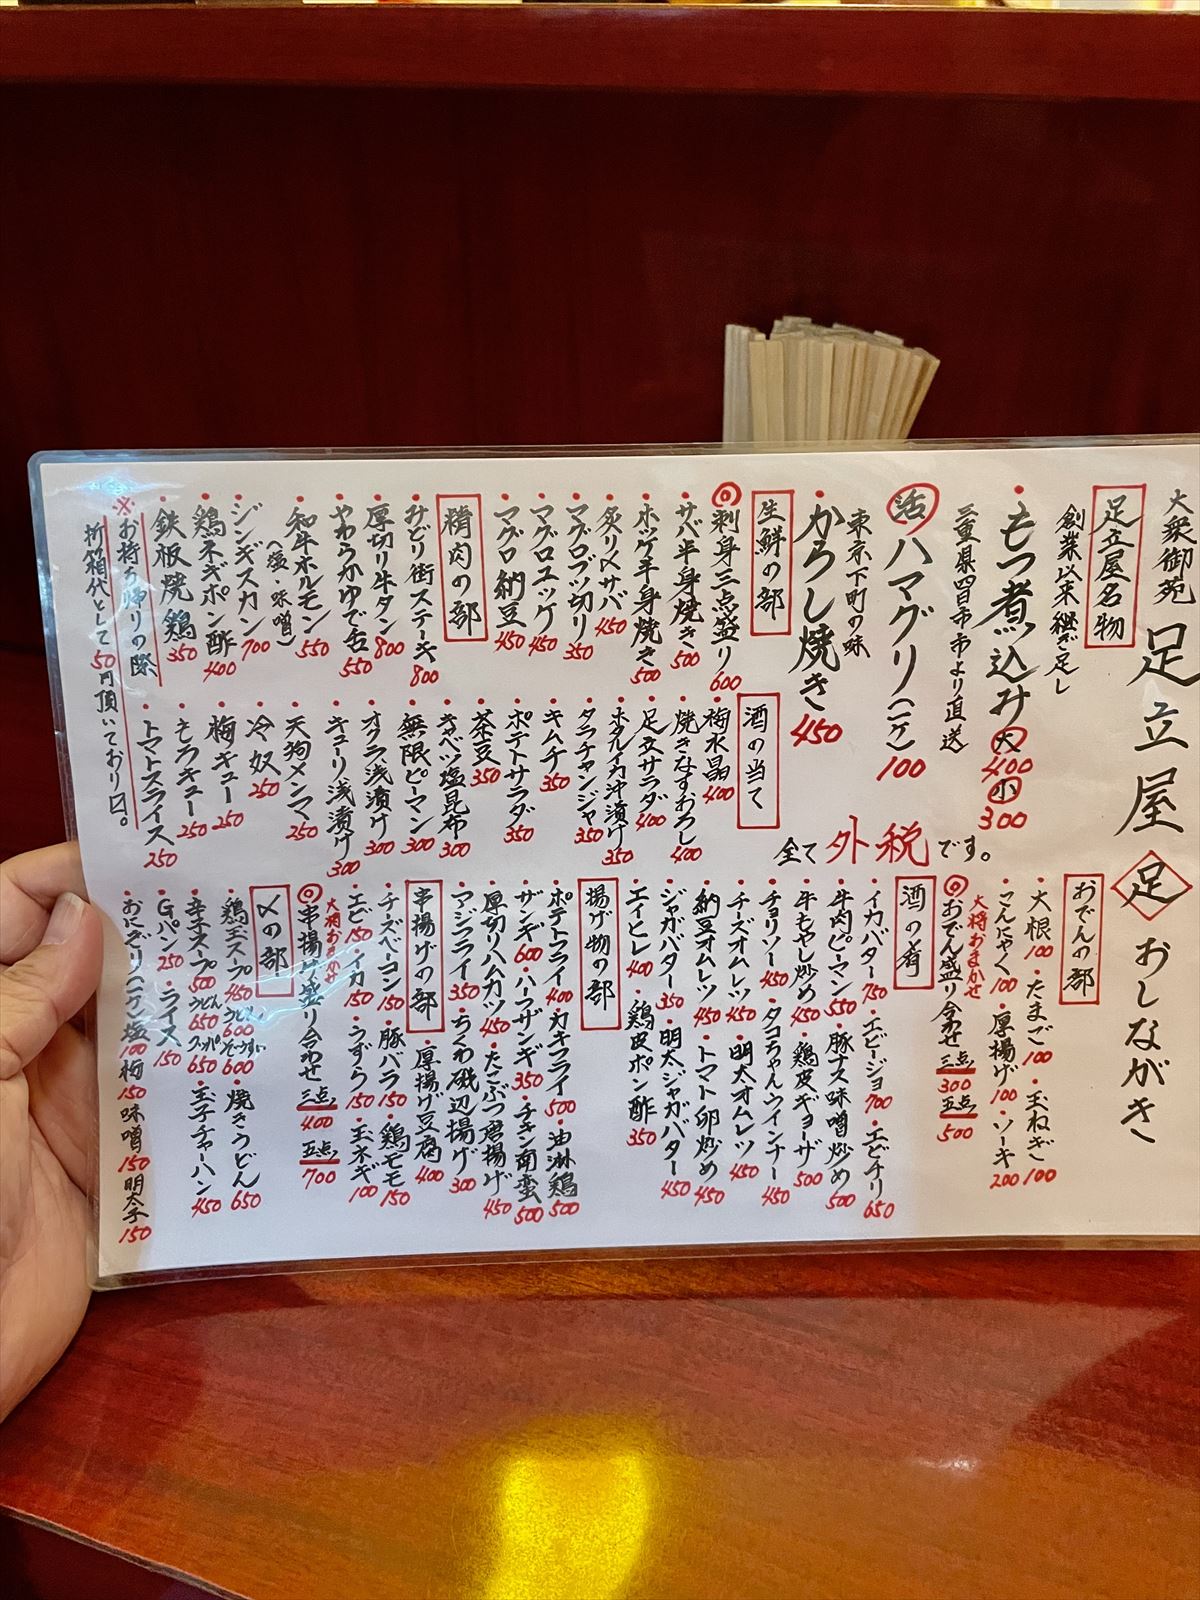 大衆御苑 足立屋 足 おしながき
足立屋名物
創業以来継ぎ足し
・もつ煮込み 大400 小300
三重県四日市市より直送
活ハマグリ(一ケ) 100
東京下町の味
・からし焼き 450
全て外税です。
生鮮の部
◎刺身三点盛り 600
・サバ半身焼き 500
・ホッケ半身焼き 500
・炙り〆サバ 450
・マグロブツ切り 350
・マグロユッケ 450
・マグロ納豆 450
精肉の部
・みどり街ステーキ 800
・厚切り牛タン 800
・やわらかゆで舌 550
・和牛ホルモン(塩・味噌) 550
・ジンギスカン 700
・鶏ネギポン酢 400
・鉄板焼鶏 350
※お持ち帰りの際
折箱代として50円頂いております。
酒の当て
・梅水晶 400
・焼きなすおろし 400
・足立サラダ 400
・ホタルイカ沖漬け 350
・タラチャンジャ 350
・キムチ 350
・ポテトサラダ 350
・茶豆 350
・キャベツ塩昆布 300
・無限ピーマン 300
・オクラ浅漬け 300
・キュウリ浅漬け 300
・天狗メンマ 250
・冷奴 250
・梅キュー 250
・もろキュー 250
・トマトスライス 250
おでんの部
・大根 100 ・たまご 100 ・玉ねぎ 100
・こんにゃく 100 ・厚揚げ 100 ・ソーキ 200
大将おまかせ
◎おでん盛り合わせ 三点 300 五点 500
酒の肴
・イカバター 750 ・エビージョ 700 ・エビチリ 650
・牛肉ピーマン 550 ・豚ナス味噌炒め 500
・牛もやし炒め 450 ・鶏皮ギョーザ 500
・チョリソー 450 ・タコちゃんウインナー 450
・チーズオムレツ 450 ・明太オムレツ 450
・納豆オムレツ 450 ・トマト卵炒め 450
・ジャガバター 350 ・明太ジャガバター 450
・エイヒレ 400 ・鶏皮ポン酢 350
揚げ物の部
・ポテトフライ 400 ・カキフライ 500 ・油淋鶏 500
・ザンギ 600 ・ハーフザンギ 350 ・チキン南蛮 500
・厚切りハムカツ 450 ・たこぶつ唐揚げ 450
・アジフライ 350 ・ちくわ磯辺揚げ 300
・厚揚げ豆腐 400
串揚げの部
・チーズベーコン 150 ・豚バラ 150 ・鶏モモ 150
・エビ 150 ・イカ 150 ・うずら 150 ・玉ネギ 100
大将おまかせ
◎串揚げ盛り合わせ 三点 400 五点 700
〆の部
・鶏玉スープ 450 うどん 600 ぞーすい 600 ・焼きうどん 650
・辛辛スープ 500 うどん 650 クッパ 650 ・玉子チャーハン 450
・Gパン 250 ・ライス 150
・おにぎり(一ケ) 塩 100 梅 150 味噌 150 明太子 150